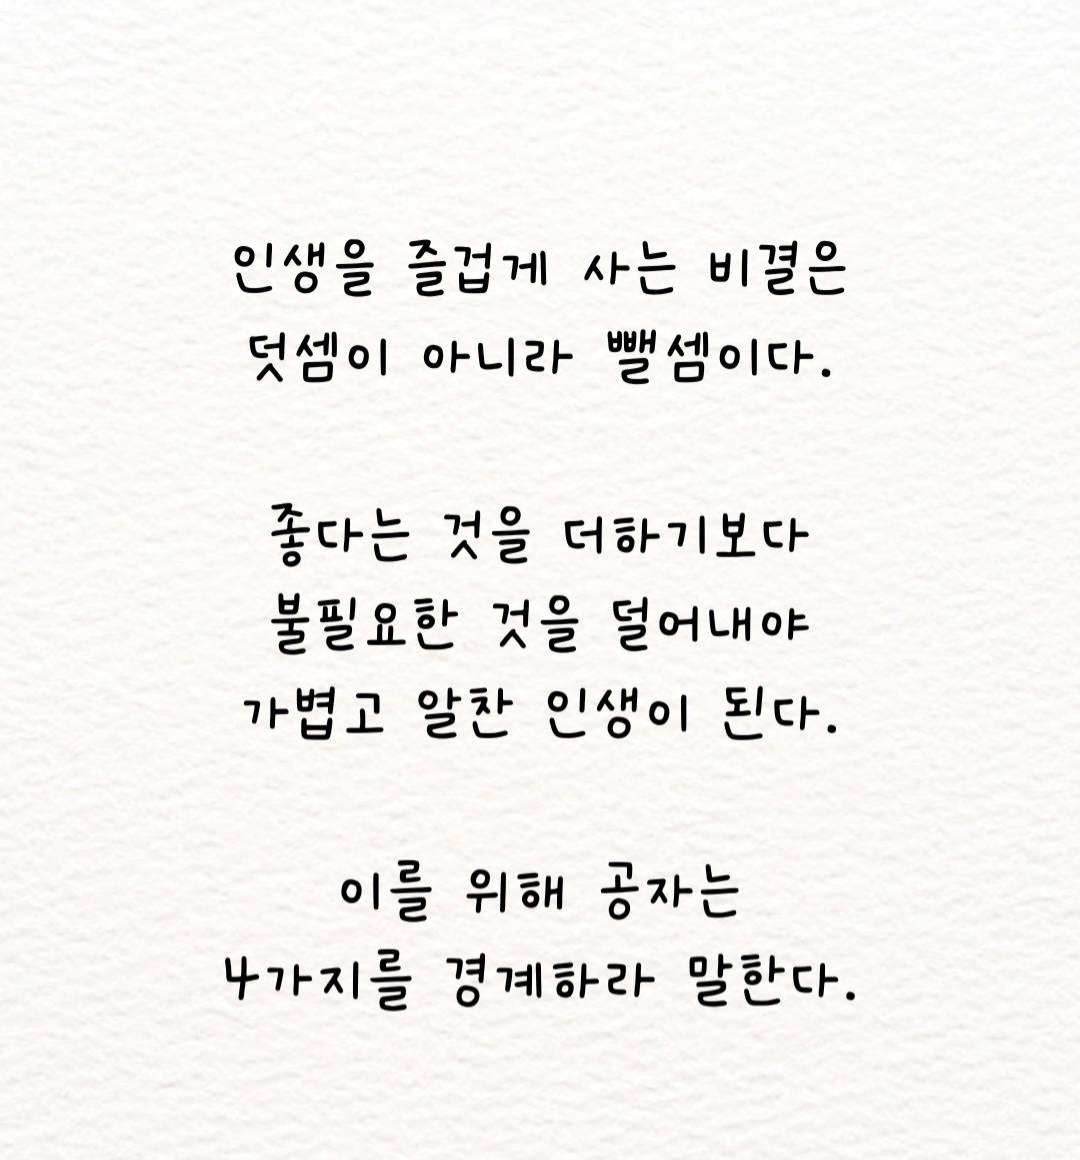 인생을 즐겁게 사는 비결은
덧셈이 아니라 뺄셈이다.
좋다는 것을 더하기보다
불필요한 것을 덜어내야
가볍고 알찬 인생이 된다.
이를 위해 공자는
4가지를 경계하라 말한다.